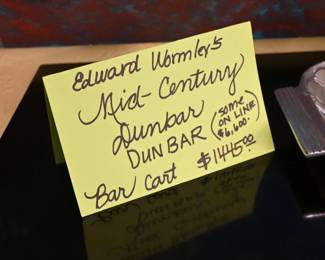 Edward Wormley's
Mid-Century
Dunbar
DUNBAR
(some
ON LINE
$6,600.)
Bar Cart $1445.00